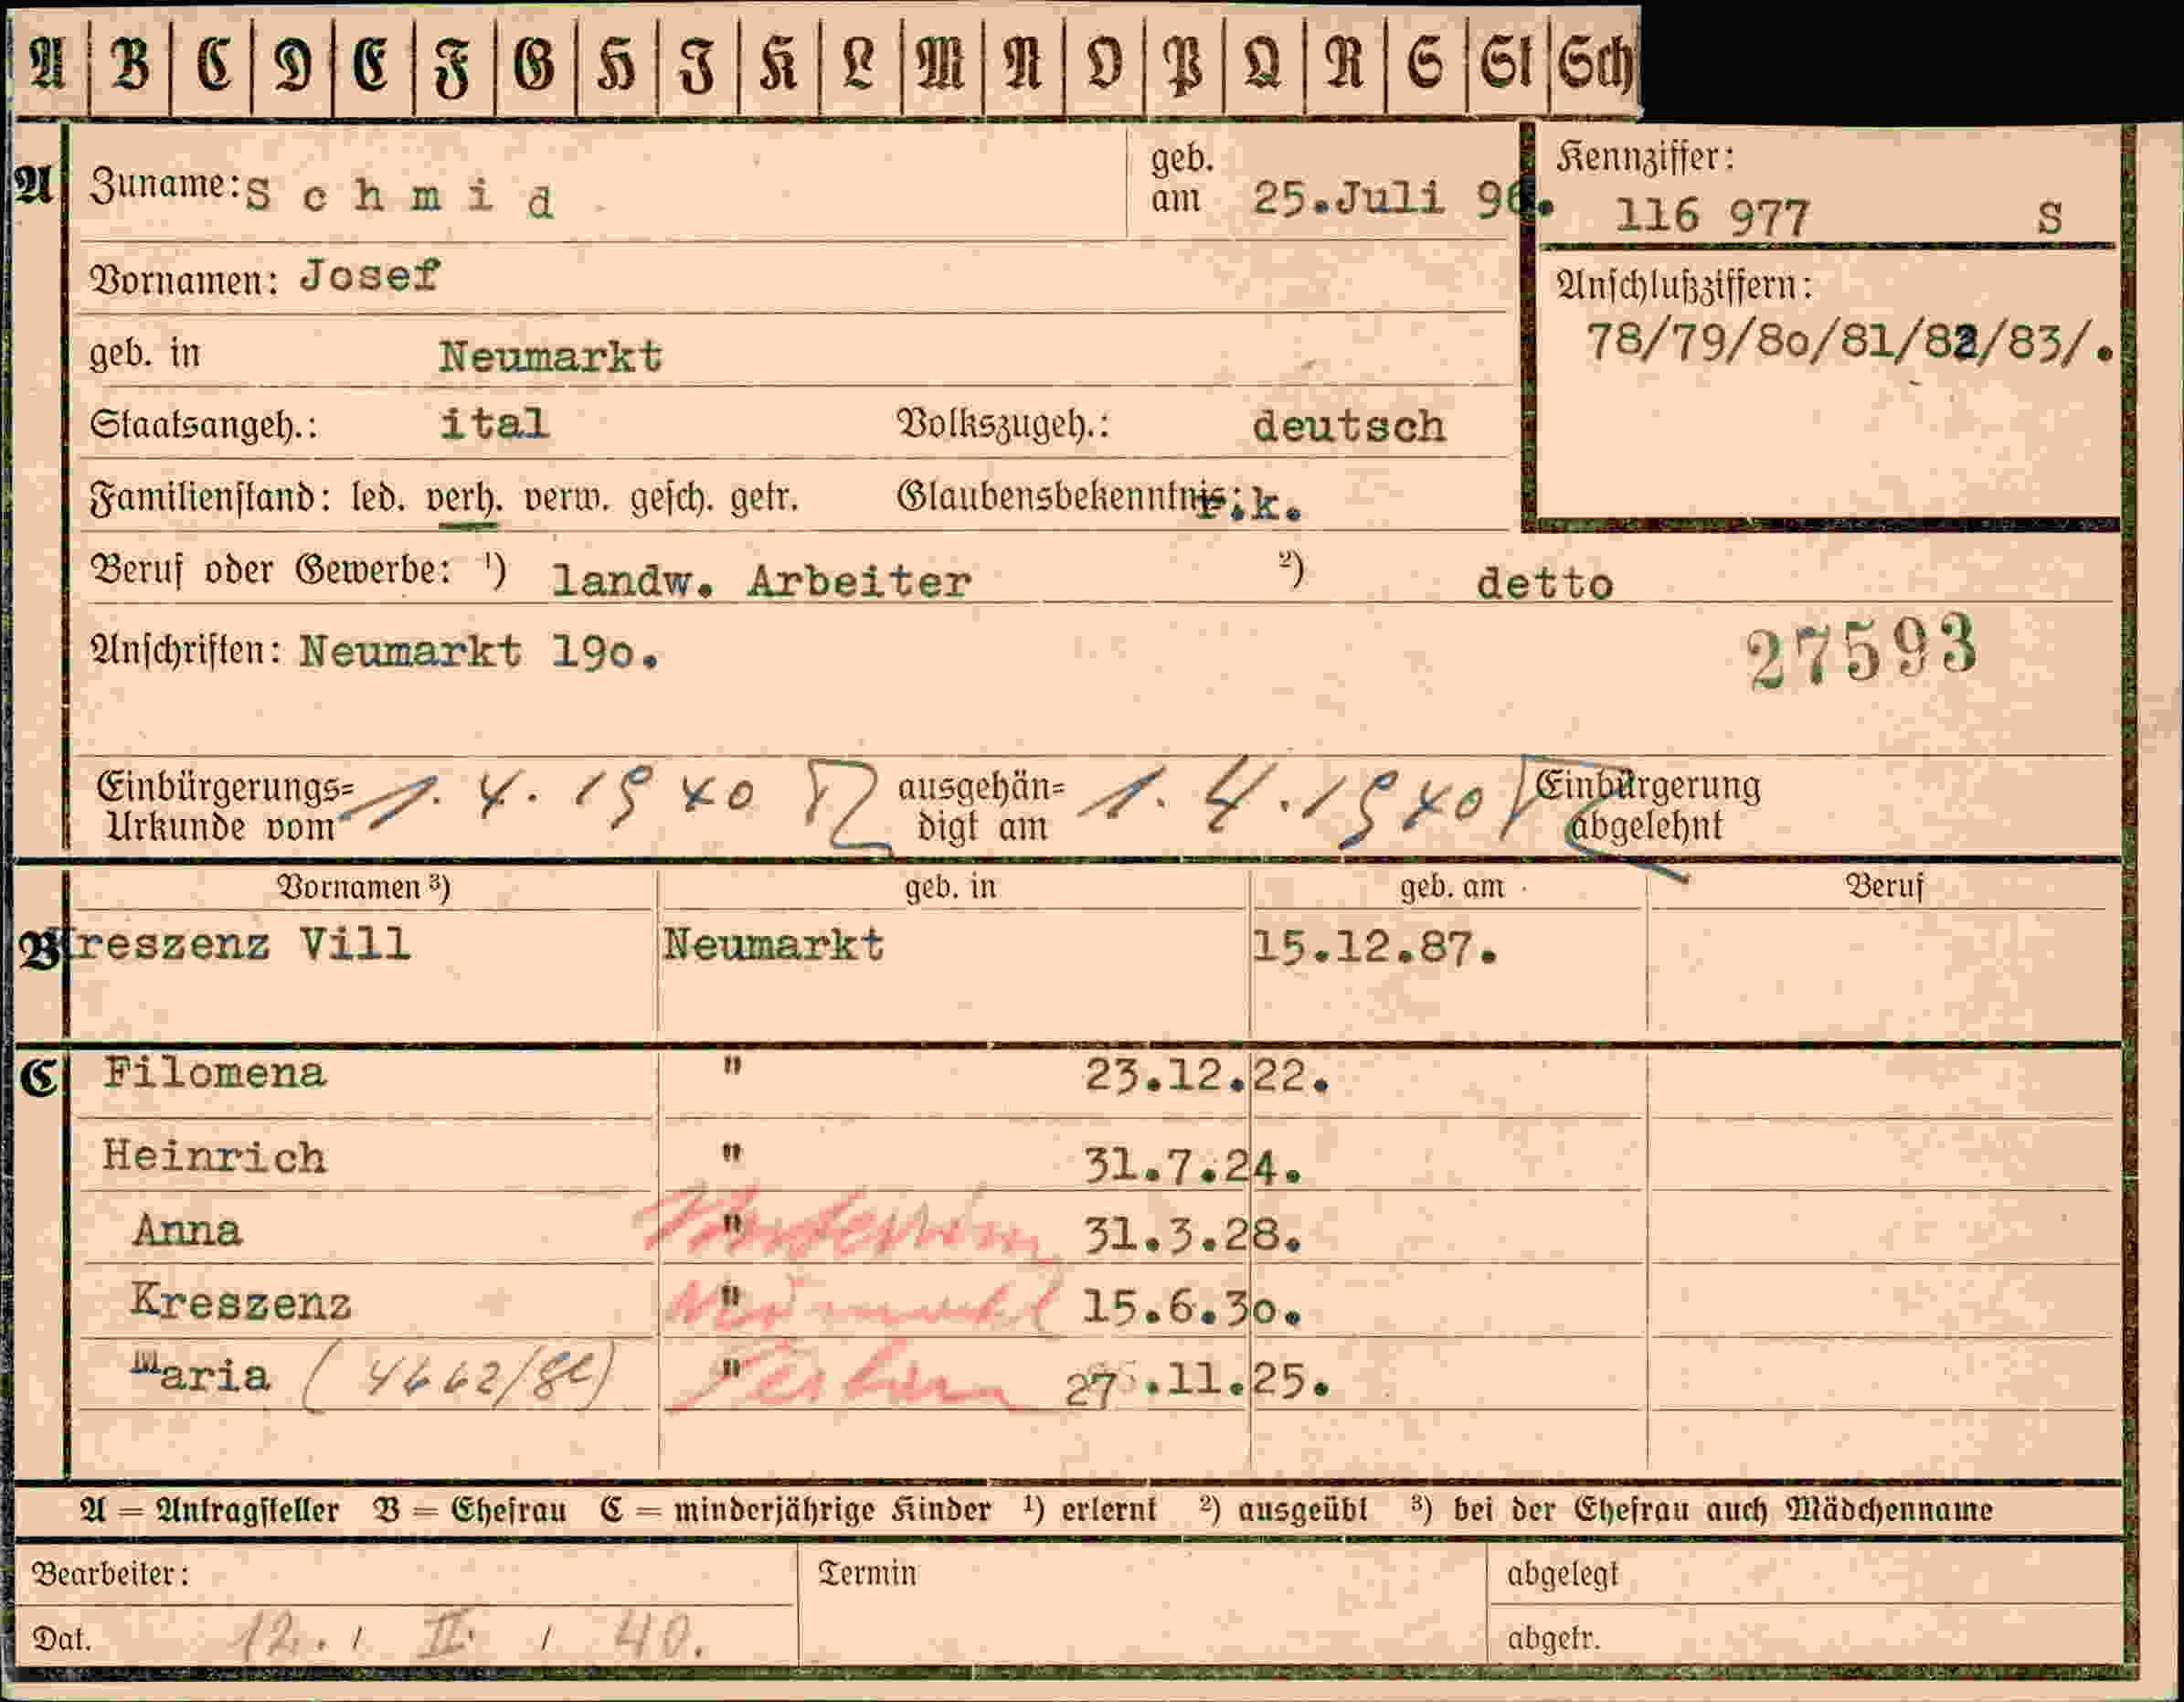 A B C D E F G H I K L M N O P Q R S St Sch
A Zuname: Schmid geb. am 25.Juli 96. Kennziffer: 116 977 S
Vornamen: Josef Anschlußziffern:
78/79/80/81/82/83/.
geb. in Neumarkt
Staatsangeh.: ital Volkszugeh.: deutsch
Familienstand: led. verh. verw. gesch. getr. Glaubensbekenntnis: k.
Beruf oder Gewerbe: ¹) landw. Arbeiter ²) detto
Anschriften: Neumarkt 190. 27593
Einbürgerungs= Urkunde vom 1. 4. 1940 ausgehän= digt am 1. 4. 1940 Einbürgerung abgelehnt
Vornamen ³) geb. in geb. am Beruf
B Kreszenz Vill Neumarkt 15.12.87.
C Filomena " 23.12.22.
Heinrich " 31.7.24.
Anna " 31.3.28.
Kreszenz " 15.6.30.
Maria " 27.11.25.
A = Antragsteller B = Ehefrau C = minderjährige Kinder ¹) erlernt ²) ausgeübt ³) bei der Ehefrau auch Mädchenname
Bearbeiter: Termin abgelegt
Dat. 12. / II. / 40. abgetr.